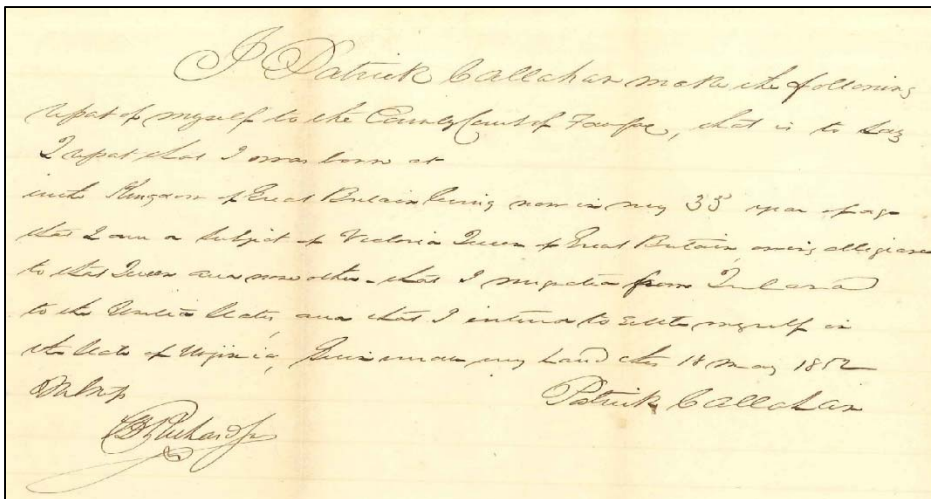 I Patrick Callahan make the following
report of myself to the County Court of Fauquier, that is to say
I report that I was born at
in the Kingdom of Great Britain being now in my 35 year of age
that I am a subject of Victoria Queen of Great Britain, owing allegiance
to that Queen and none other - that I migrated from Ireland
to the United States, and that I intend to settle myself in
the State of Virginia, Given under my hand this 18 May 1852
Patrick Callahan